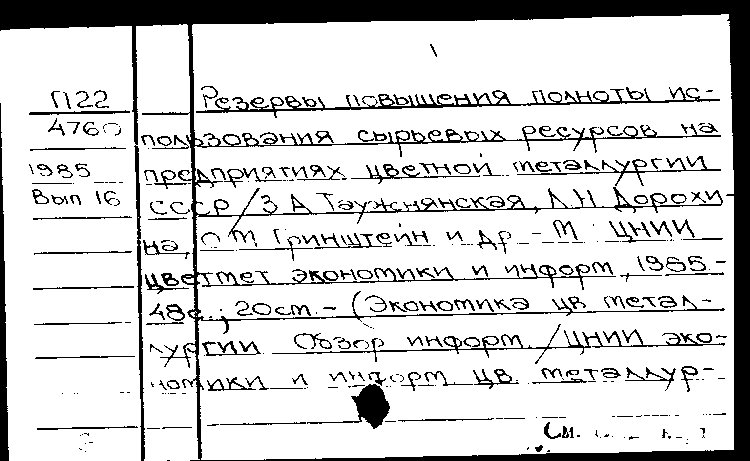 П22
4760
1985
Вып 16
Резервы повышения полноты ис-
пользования сырьевых ресурсов на
предприятиях цветной металлургии
СССР / З А Таужнянская, Л Н Дорохи-
на, О М Гринштейн и др - М ЦНИИ
цветмет экономики и информ, 1985 -
48с.; 20см. - (Экономика цв метал-
лургии Обзор информ. / ЦНИИ эко-
номики и информ цв. металлур-
См.